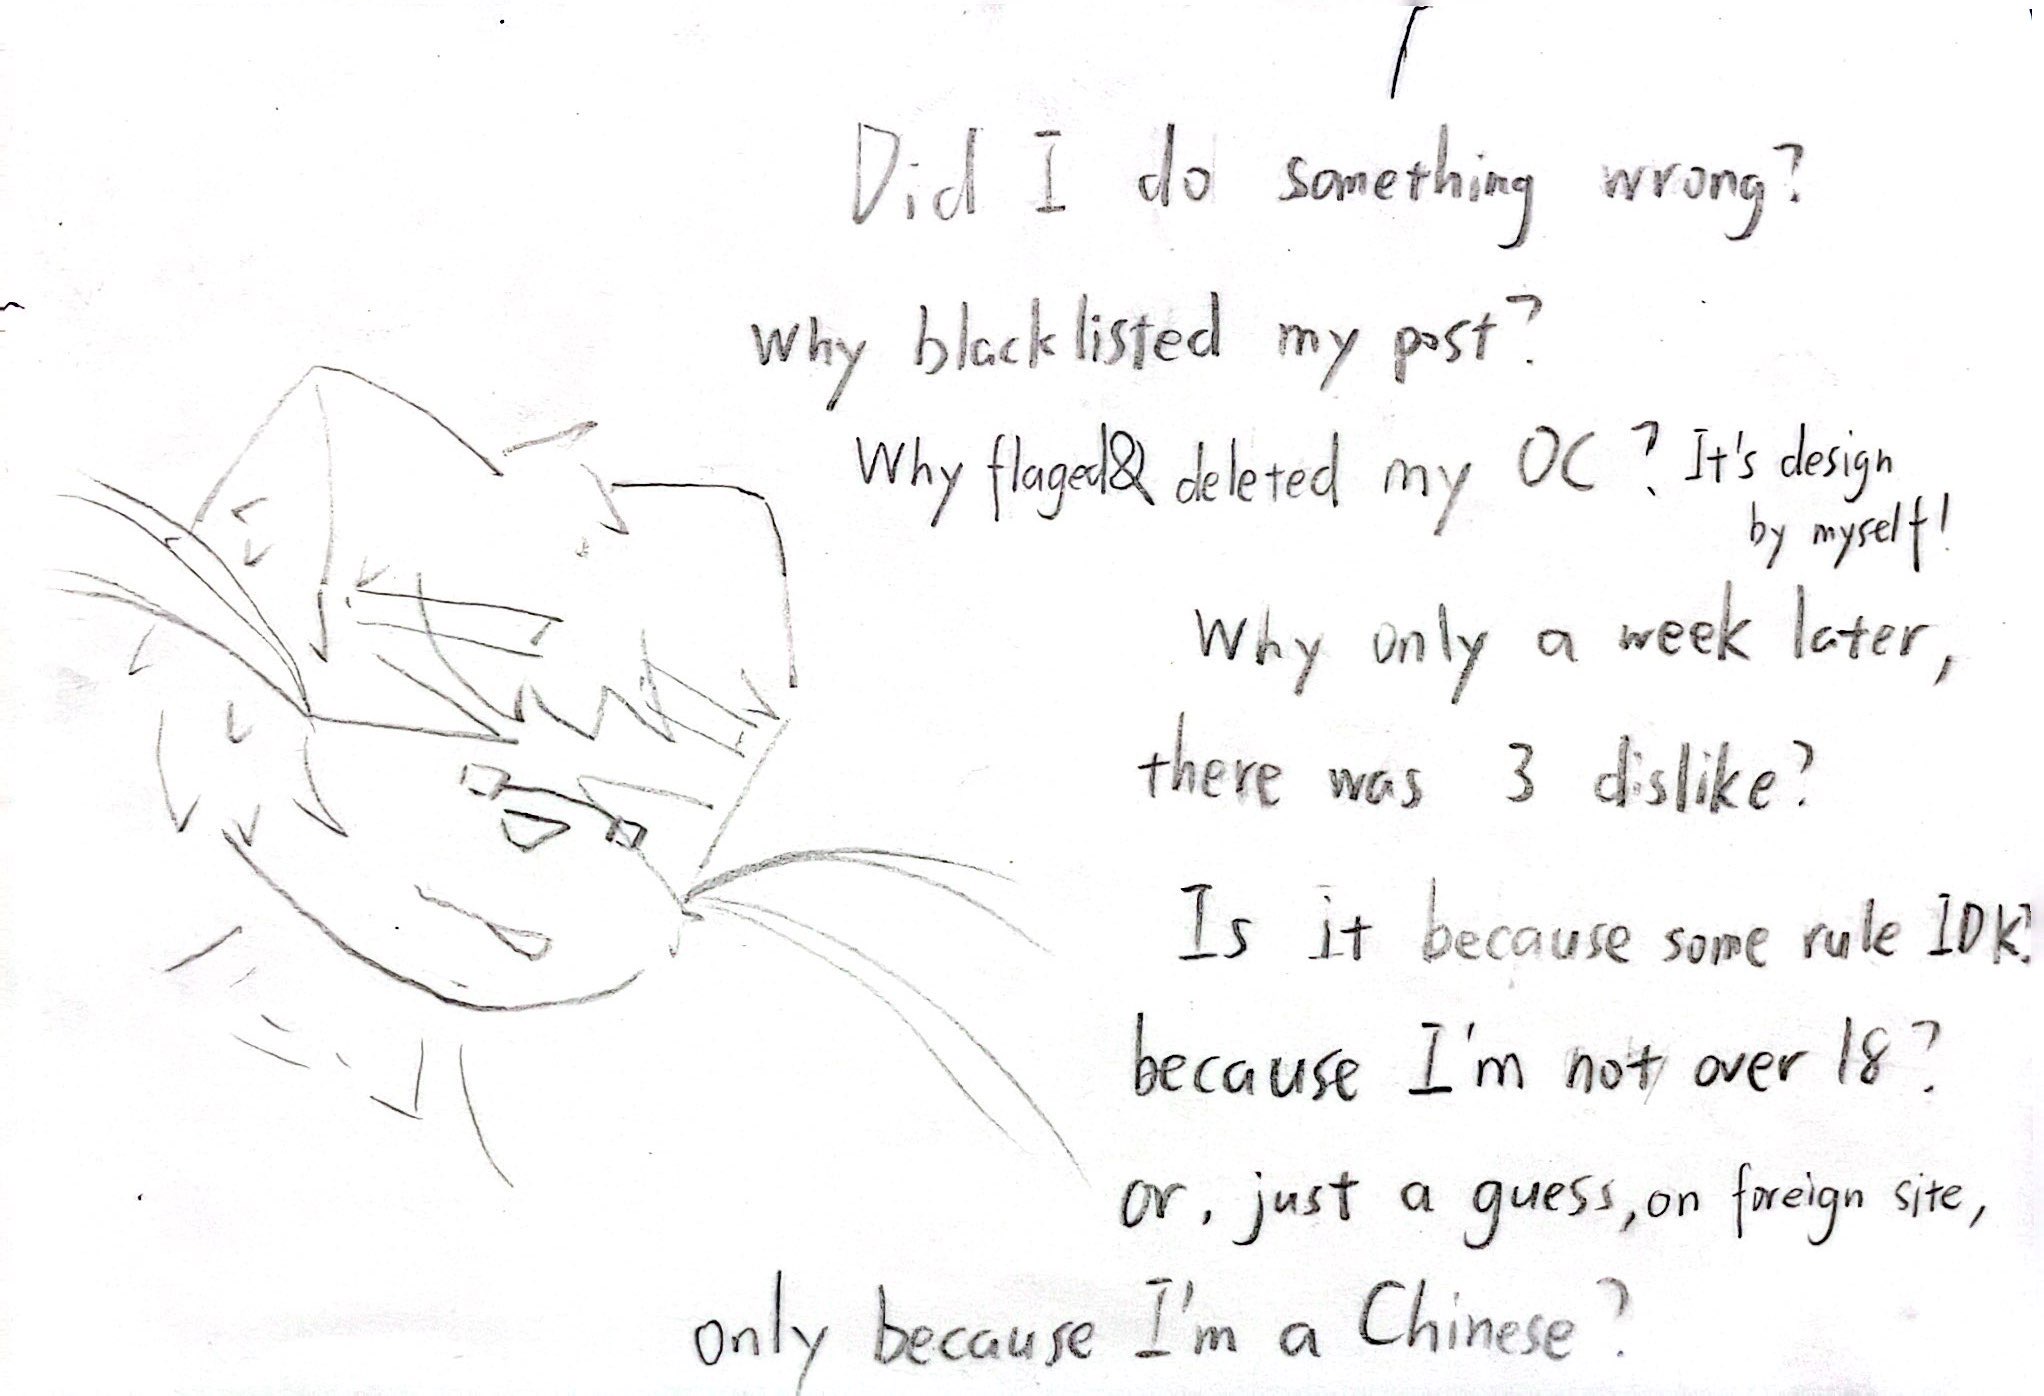 Did I do something wrong?
Why blacklisted my post?
Why flaged& deleted my OC? It's design
by myself!
Why only a week later,
there was 3 dislike?
Is it because some rule IDK?
because I'm not over 18?
or, just a guess, on foreign site,
only because I'm a Chinese?